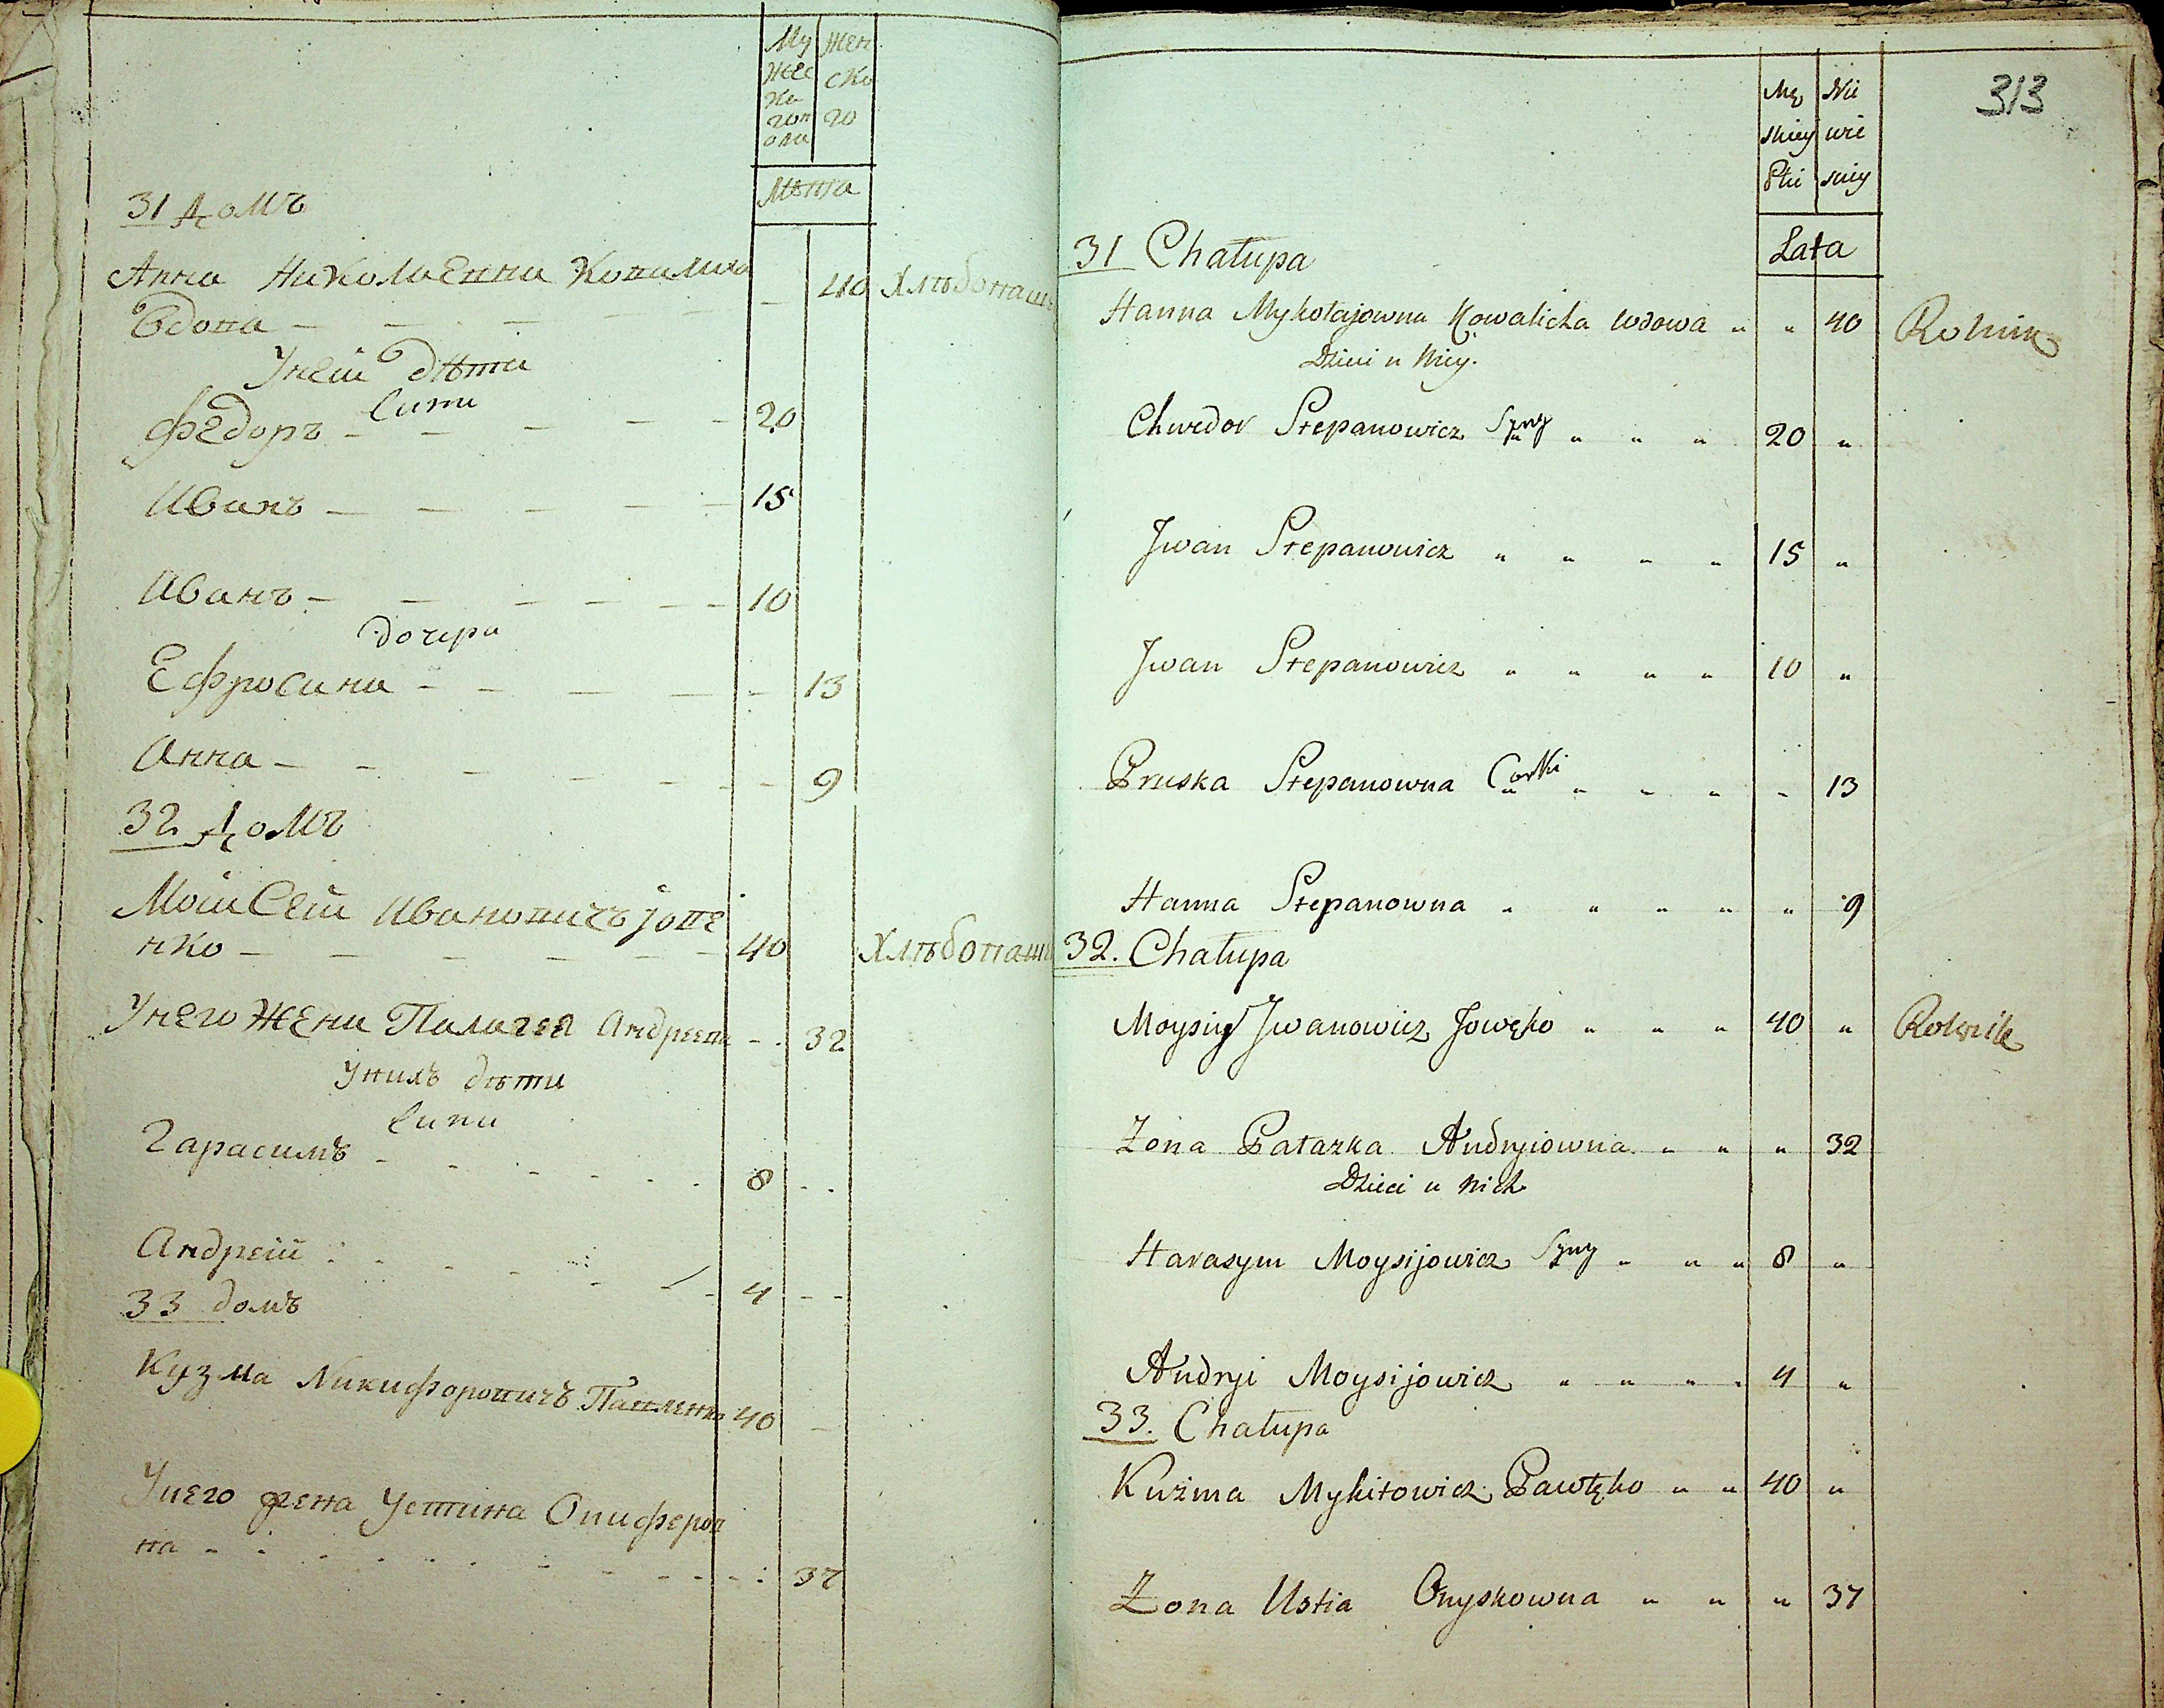 Му
жес
ка
гоп
ола
жен
ско
го
Лѣта
31 домъ
Анна Николаевна Ковалиха 40 Хлѣбопаш
Вдова — — — — —
Унеи дѣти
Сини
Федоръ — — — — — 20
Иванъ — — — — — 15
Иванъ — — — — — — 10
дочери
Ефросина — — — — — 13
Анна — — — — — — — 9
32 домъ
Моисеи Ивановичъ Jове
нко — — — — — — 40 Хлѣбопаш
Унего жена Палагея Андреев - . 32
Унихъ дѣти
Сини
Гарасимъ - - - - - - - 8 - -
Андреи - - - - - - - 4 - -
33 домъ
Кузма Никифоровичъ Павленко 40 -
Унего жена Устина Онисферов
на - - - - - - - - - - 37
313
Mę
skiey
Płci
Nie
wie
sciey
Lata
31 Chałupa
Hanna Mykołajowna Kowalicha wdowa " " 40 Rolnik
Dzieci u Niey.
Chwedor Stepanowicz Syny " " " " 20 "
Jwan Stepanowicz " " " " 15 "
Jwan Stepanowicz " " " " 10 "
Pruska Stepanowna Corki " " " " " 13
Hanna Stepanowna " " " " " 9
32. Chałupa
Moysiy Jwanowicz Jowęko " " " 40 " Rolnik
Zona Pałazka Andryiowna " " " 32
Dzieci u Nich
Harasym Moysijowicz Syny " " " 8 "
Andryi Moysijowicz " " " " 4 "
33. Chałupa
Kuźma Mykitowicz Pawłęko " " 40 "
Zona Ustia Onyskowna " " " 37